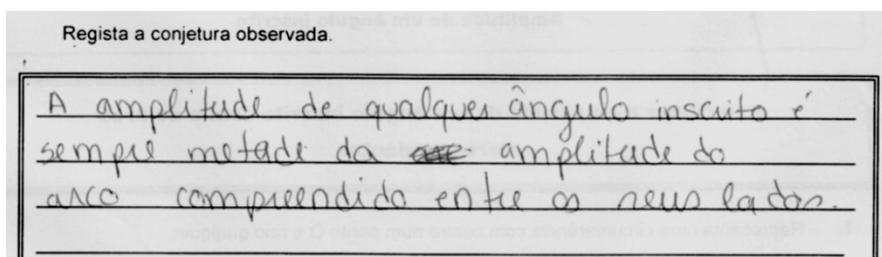 Regista a conjetura observada.
A amplitude de qualquer ângulo inscrito é
sempre metade da amplitude do
arco compreendido entre os seus lados.